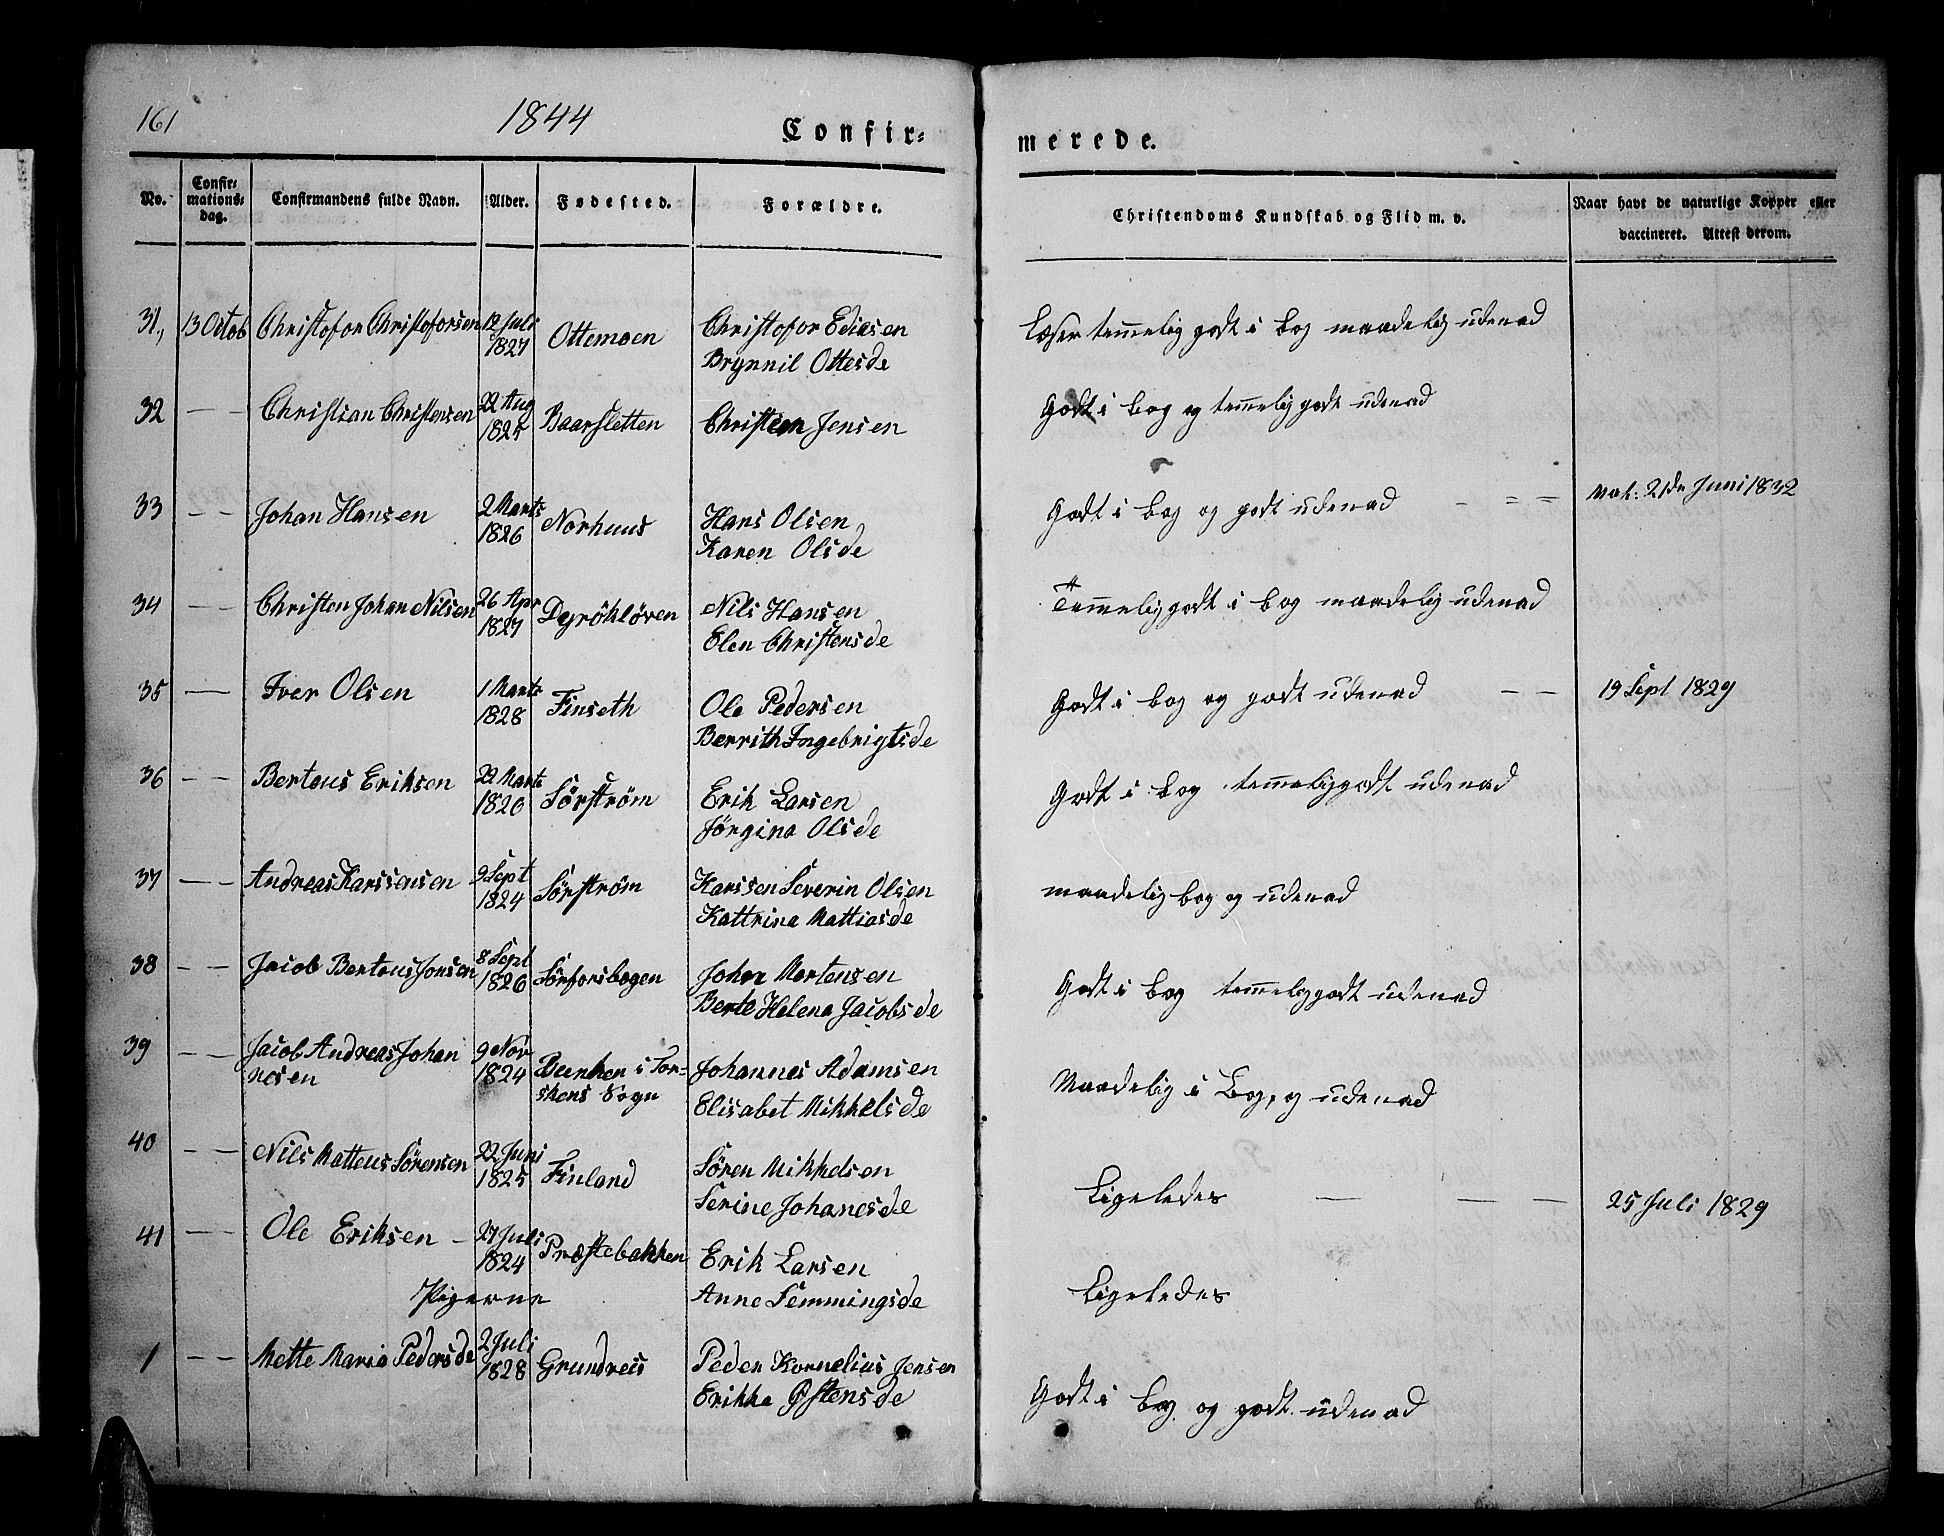 161
1844
Confir-
merede.
No.
Confir-
mations-
dag.
Confirmandens fulde Navn.
Alder.
Fødested.
Forældre.
Christendoms Kundskab og Flid m. v.
Naar havt de naturlige Kopper eller
vaccineret. Attest derom.
31., 13 Octob Christofor Christoforsen 12 Juli Ottemoen Christofor Ediasen Læser temmelig godt i bog maadelig udenad
1827 Brynnil Ottesde
32 — — Christian Christensen 22 Aug Baarsletten Christian Jensen Godt i bog og temmelig godt udenad
1825
33 — — Johan Hansen 2 Marts Norhuus Hans Olsen Godt i bog og godt udenad - = = Vak: 21de Juni 1832
1826 Karen Olsde
34 — — Christen Johan Nilsen 26 Apr Dyröhlöven Nils Hansen Temmelig godt i bog maadelig udenad
1827 Elen Christensde
35 — Iver Olsen 1 Marts Finseth Ole Pedersen Godt i bog og godt udenad — — 19 Sept 1829
1828 Berrith Ingebrigtsde
36 — — Bertous Eriksen 22 Marts Sörström Erik Larsen Godt i bog temmelig godt udenad
1820 Jørgina Olsde
37 — — Andreas Karssensen 9 Sept Sörström Karssen Severin Olsen maadelig bog og udenad
1824 Kattrina Mattiasde
38 — — Jacob Bertous Jonsen 8 Sept Sörforsbogen Johan Mortensen Godt i bog temmelig godt udenad
1826 Berte Helena Jacobsde
39 — — Jacob Andreas Johan 9 Nov i Tor- Johannes Adamsen Maadelig i Bog, og udenad
nesen 1824 skens Sogn Elisabet Mikkelsde
40 — — Nils Matteus Sörensen 22 Juni Finland Sören Mikkelsen Ligeledes — — — 25 Juli 1829
1825 Serine Johanesde
41 — Ole Eriksen — 27 Juli Præstebakken Erik Larsen Ligeledes
1824 Anne Semmingsde
Pigerne
1 — — Mette Maria Pedersde 2 Juli Grundreis Peder Kornelius Jensen Godt i bog og godt udenad
1828 Erikke Østensde